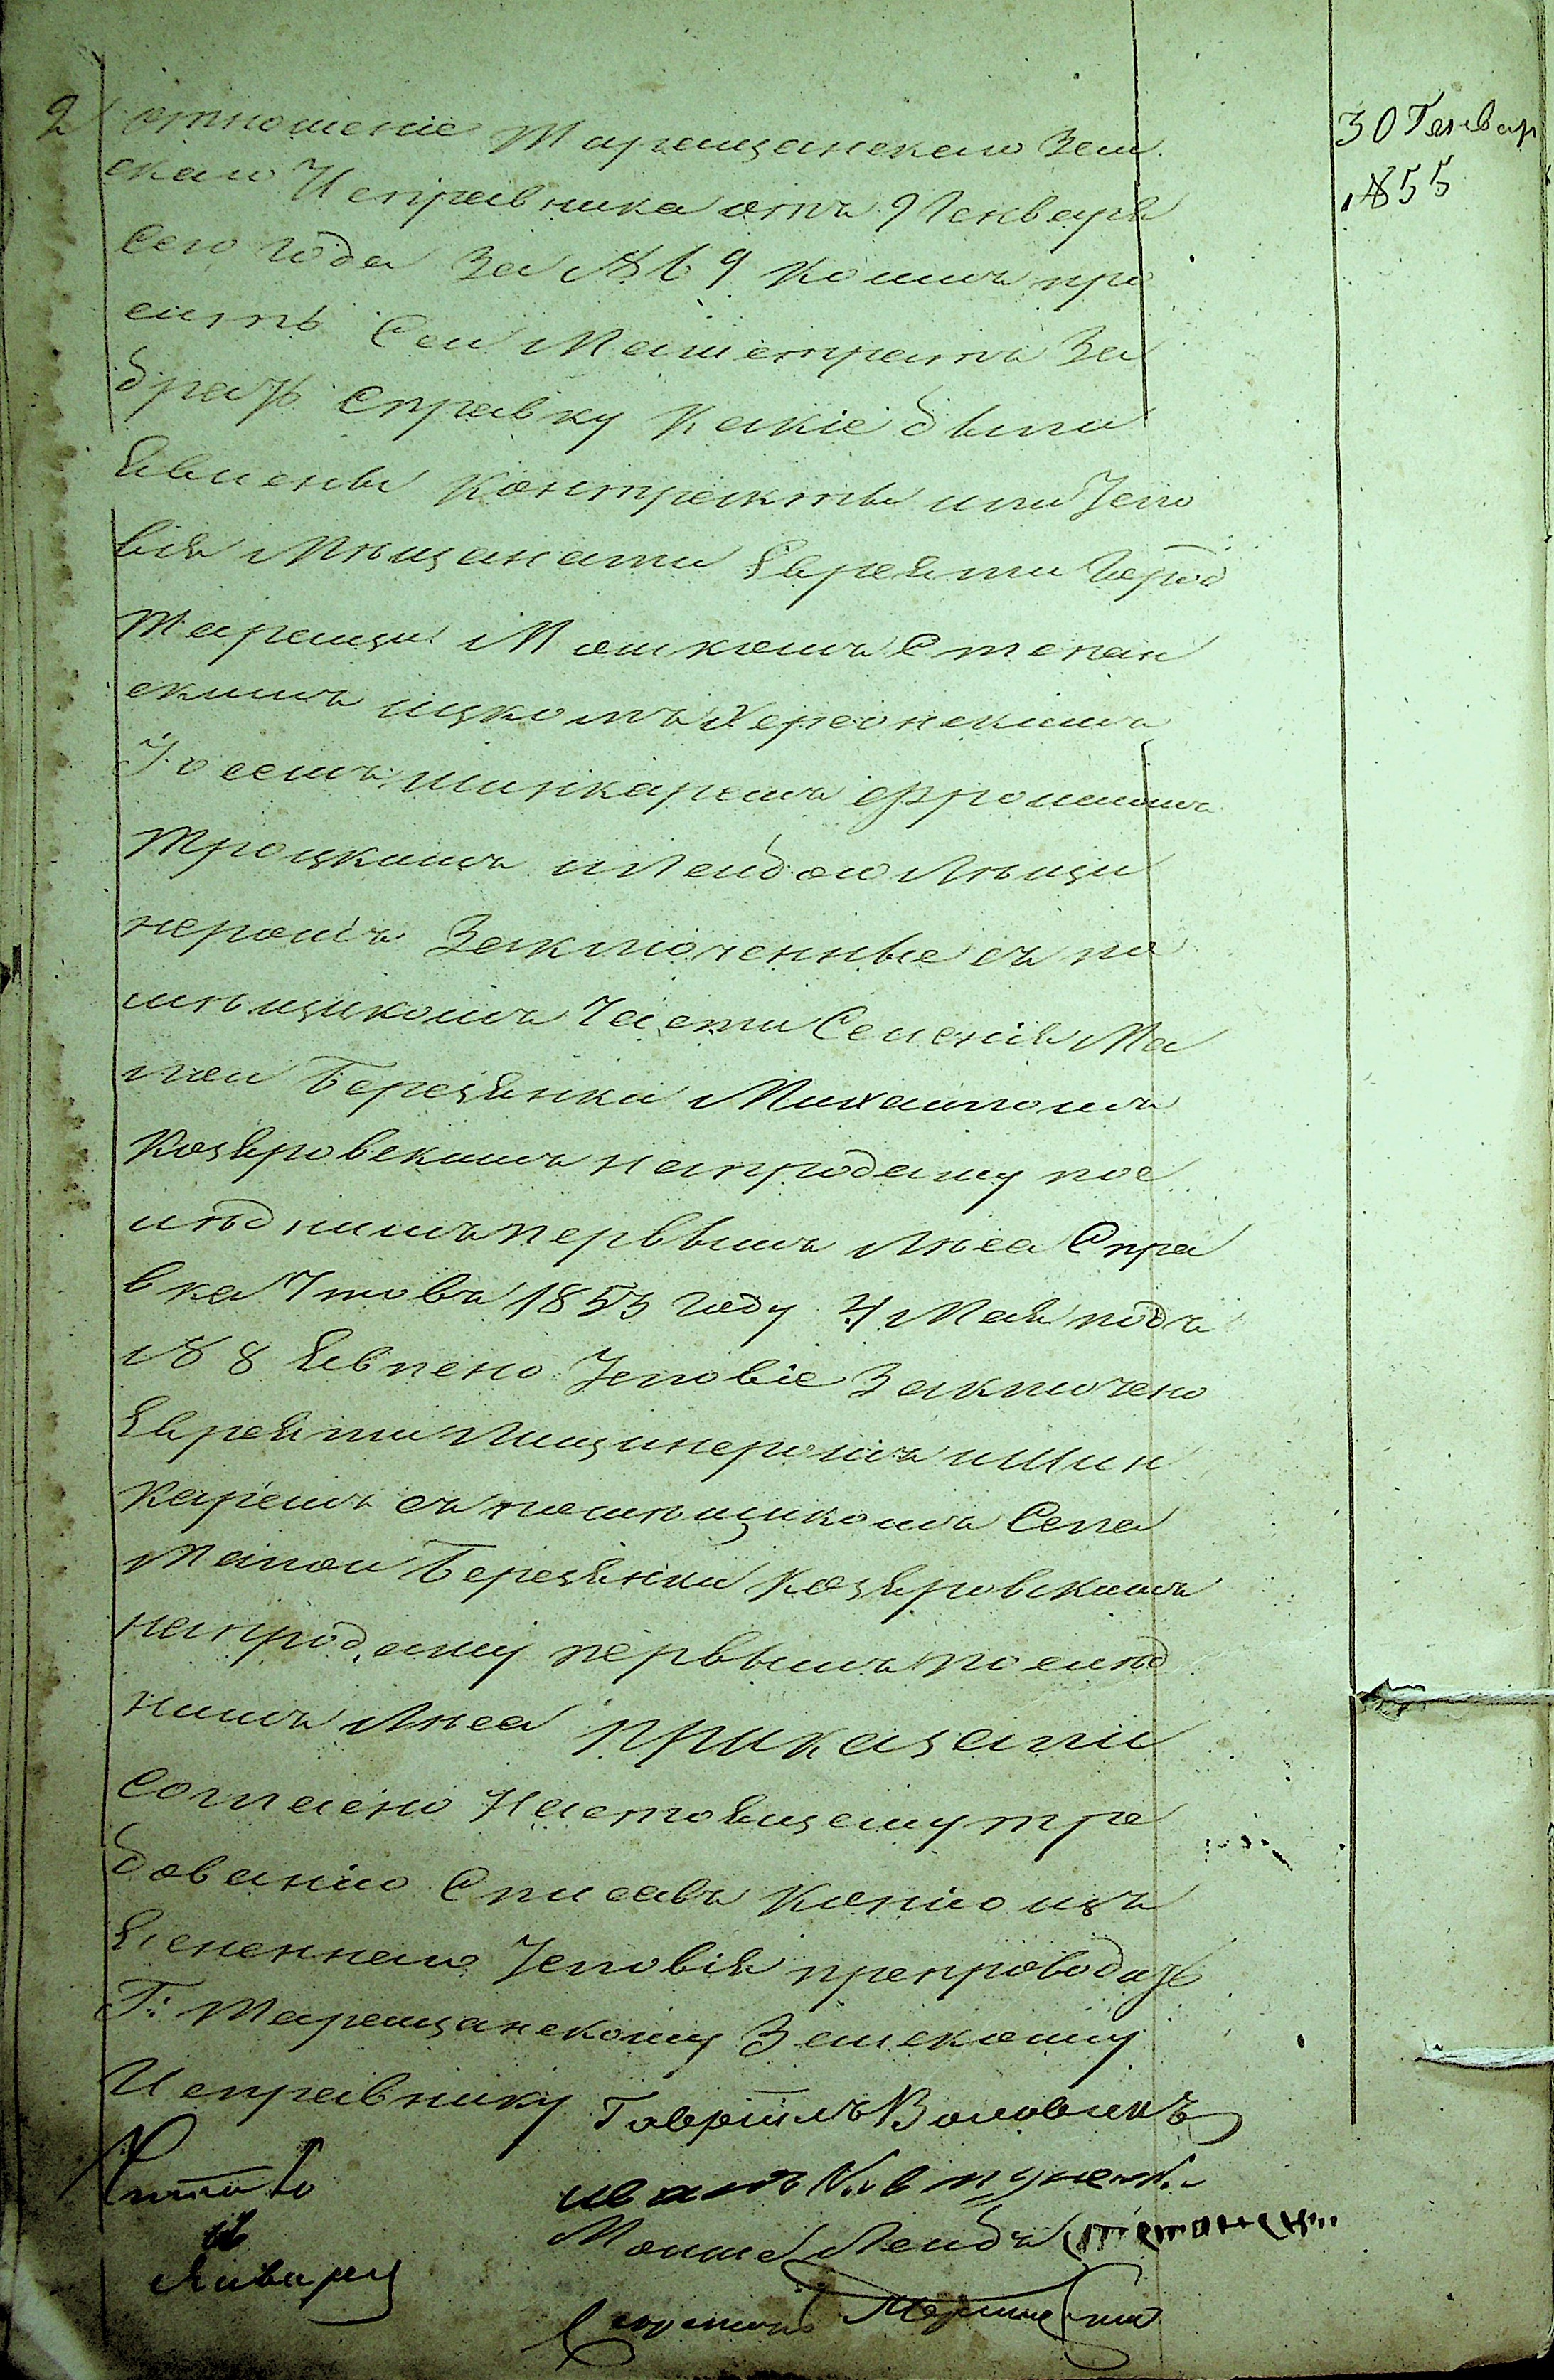 2 отношеніе Таращанскаго Зем
30 Генвар
скаго Исправника отъ 9 Генваря
№ 55
сего года за № 69 коимъ про
ситъ сей Магистратъ за
брать Справку какіе были
явлены контракты или Усло
вія Мѣщанами Евреями город
Таращи Мошкомъ Степан
скимъ ицкомъ Херсонскимъ
Іосемъ Шинкаремъ Фроимомъ
Троцкимъ и Лейбою Лѣщи
неромъ Заключенные съ по
мѣщикомъ Части Селенія Ма
лой Березянки Михаиломъ
Козяровскимъ на продажу пос
лѣднимъ первымъ лѣса Спра
вка Что въ 1853 году 4 Мая подъ
№ 8 Явлено Условіе Заключено
Евреями Лищинеромъ и Шин
каремъ съ помѣщикомъ Села
Малой Березянки Козяровскимъ
на продажу первымъ послѣд
нимъ лѣса Приказали
Согласно Настоящему тре
бованію Списавъ Копію изъ
Ясненнаго Условія препроводить
Г: Таращанскому Земскому
Исправнику Гавріилъ Воловикъ
Читалъ
Иванъ
Мошко Лейбъ
Января
Секретарь